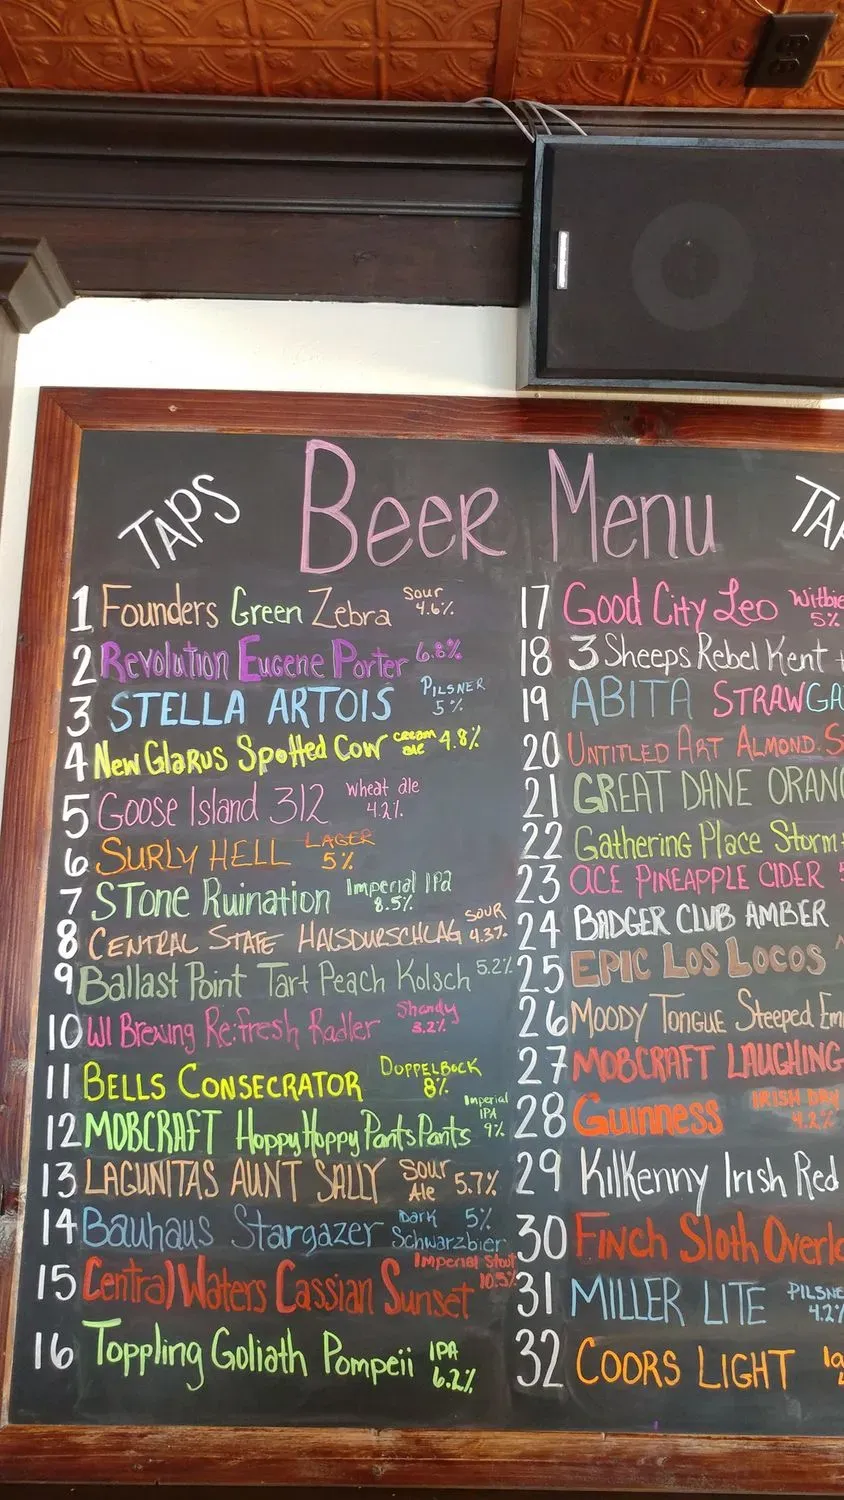 TAPS
Beer Menu
TAP
1 Founders Green Zebra Sour 4.6%
2 Revolution Eugene Porter 6.8%
3 STELLA ARTOIS PILSNER 5%
4 New Glarus Spotted Cow cream ale 4.8%
5 Goose Island 312 Wheat ale 4.2%
6 SURLY HELL LAGER 5%
7 STone Ruination Imperial IPA 8.5%
8 CENTRAL STATE HALSDURSCHLAG SOUR 4.3%
9 Ballast Point Tart Peach Kolsch 5.2%
10 WI Brewing Re:fresh Radler Shandy 3.2%
11 BELLS CONSECRATOR DOPPELBOCK 8%
12 MOBCRAFT HoppyHoppy PantsPants Imperial IPA 9%
13 LAGUNITAS AUNT SALLY Sour Ale 5.7%
14 Bauhaus Stargazer Dark Schwarzbier 5%
15 Central Waters Cassian Sunset Imperial Stout 10.5%
16 Toppling Goliath Pompeii IPA 6.2%
17 Good City Leo Witbie 5%
18 3 Sheeps Rebel Kent
19 ABITA STRAWGA
20 UNTITLED ART ALMOND S
21 GREAT DANE ORAN
22 Gathering Place Storm
23 ACE PINEAPPLE CIDER
24 BADGER CLUB AMBER
25 EPIC LOS LOCOS
26 MOODY TONGUE Steeped Em
27 MOBCRAFT LAUGHING
28 Guinness IRISH DRY 4.2%
29 Kilkenny Irish Red
30 FINCH Sloth Overlo
31 MILLER LITE PILSNE 4.2%
32 COORS LIGHT la